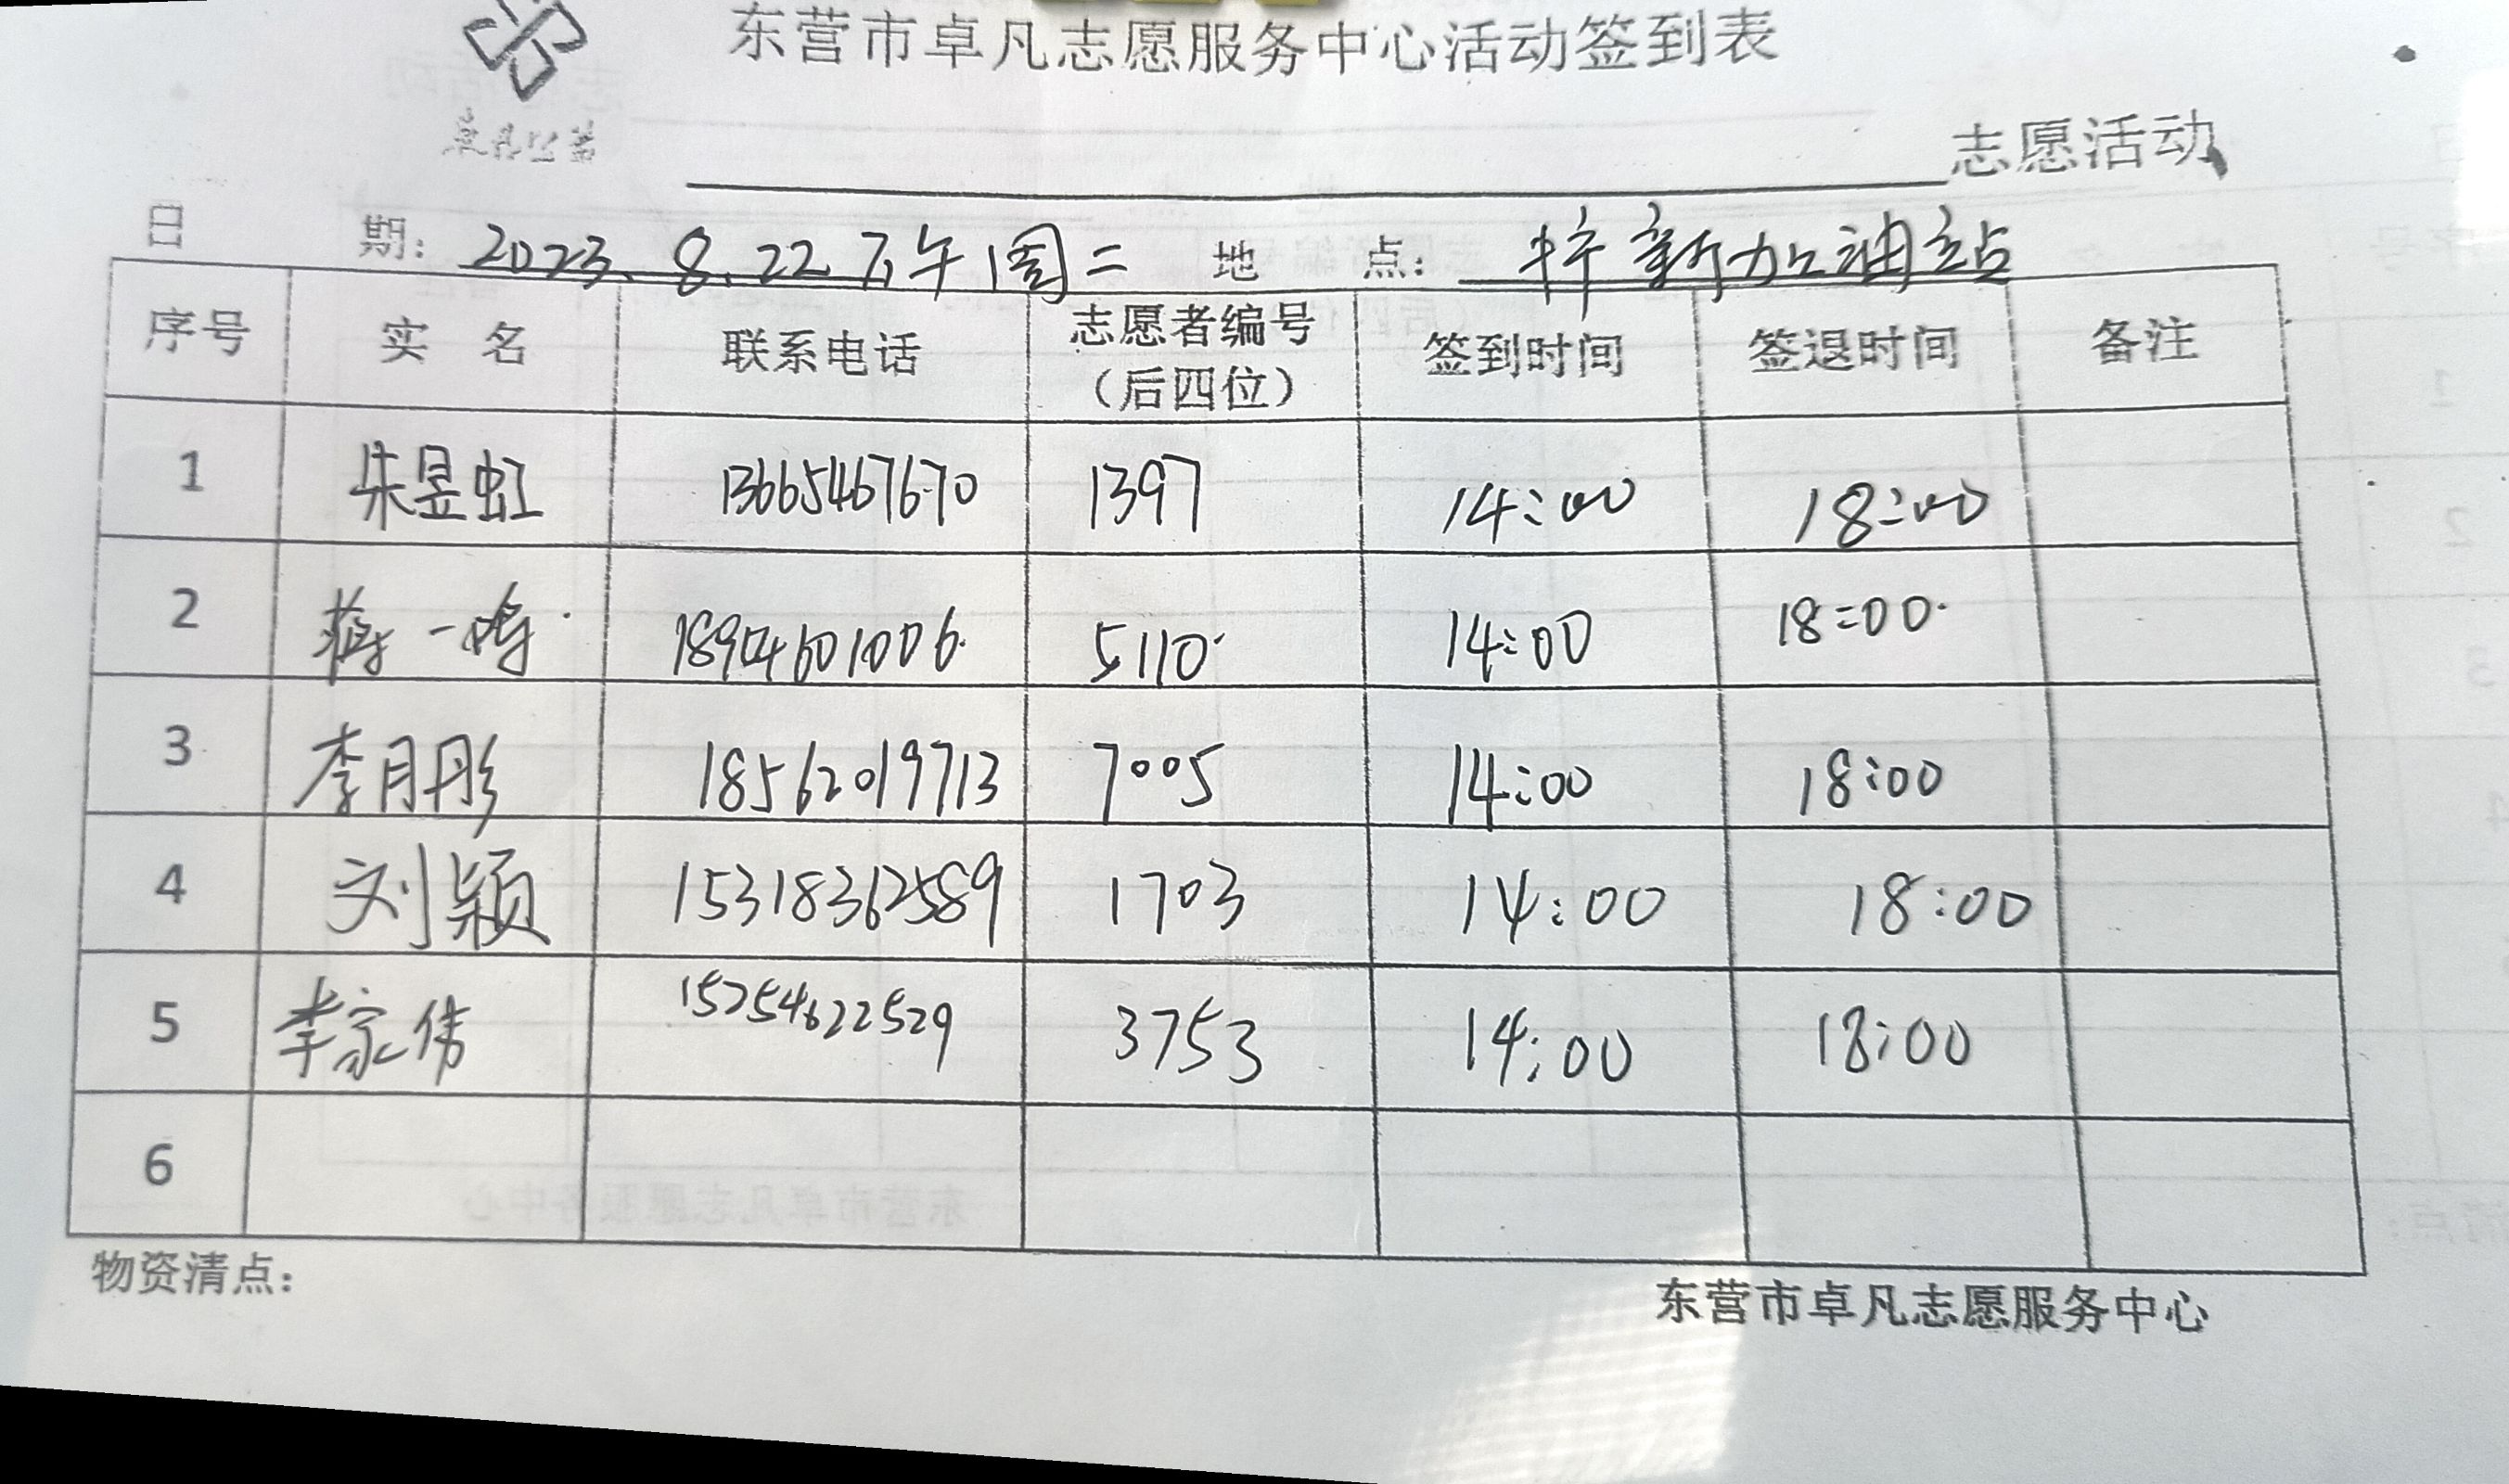 东营市卓凡志愿服务中心活动签到表
卓凡公益
志愿活动
日 期：2023.8.22 下午 周二 地 点：梓新加油站
序号 实 名 联系电话 志愿者编号（后四位） 签到时间 签退时间 备注
1 朱昱虹 13665467670 1397 14:00 18:00
2 蒋一鸣 18904601006 5110 14:00 18:00
3 李月彤 18562019713 7005 14:00 18:00
4 刘颖 15318362589 1703 14:00 18:00
5 李家伟 15254622529 3753 14:00 18:00
6
物资清点：
东营市卓凡志愿服务中心